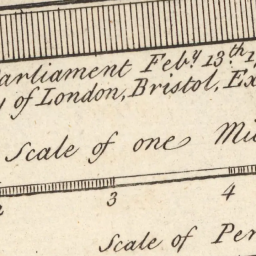 arliament Feb.y 13.th 1
of London, Bristol, Ex
Scale of one Mi
3 4
Scale of Per